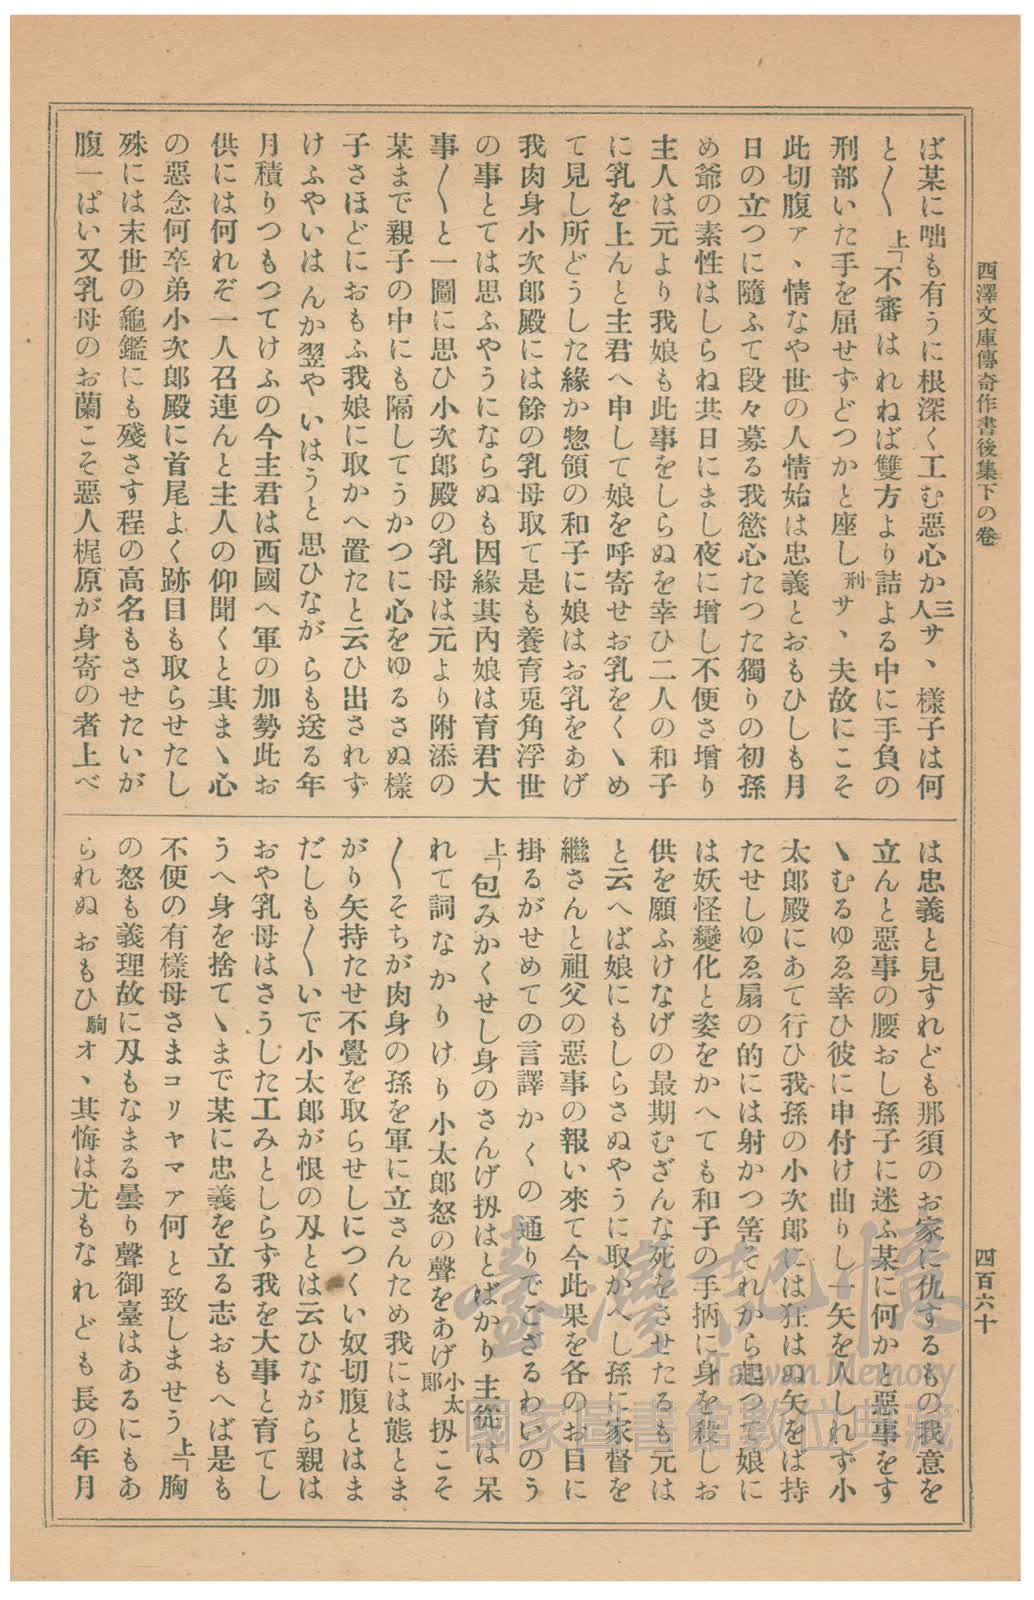 西澤文庫傳奇作書後集下の卷
四百六十
ば某に咄も有うに根深く工む惡心か三人サヽ樣子は何
と〳〵上「不審はれねば雙方より詰よる中に手負の
刑部いた手を屈せずどつかと座し刑サヽ夫故にこそ
此切腹アヽ情なや世の人情始は忠義とおもひしも月
日の立つに隨ふて段々募る我慾心たつた獨りの初孫
め爺の素性はしらね共日にまし夜に增し不便さ增り
主人は元より我娘も此事をしらぬを幸ひ二人の和子
に乳を上んと主君へ申して娘を呼寄せお乳をくゝめ
て見し所どうした緣か惣領の和子に娘はお乳をあげ
我肉身小次郞殿には餘の乳母取て是も養育兎角浮世
の事とては思ふやうにならぬも因緣其內娘は育君大
事〳〵と一圖に思ひ小次郞殿の乳母は元より附添の
某まで親子の中にも隔してうかつに心をゆるさぬ樣
子さほどにおもふ我娘に取かへ置たと云ひ出されず
けふやいはんか翌やいはうと思ひながらも送る年
月積りつもつてけふの今主君は西國へ軍の加勢此お
供には何れぞ一人召連んと主人の仰聞くと其まゝ心
の惡念何卒弟小次郞殿に首尾よく跡目も取らせたし
殊には末世の龜鑑にも殘さす程の高名もさせたいが
腹一ぱい又乳母のお蘭こそ惡人梶原が身寄の者上べ
は忠義と見すれども那須のお家に仇するもの我意を
立んと惡事の腰おし孫子に迷ふ某に何かと惡事をす
ゝむるゆゑ幸ひ彼に申付け曲りし一矢を人しれず小
太郞殿にあて行ひ我孫の小次郞には狂はぬ矢をば持
たせしゆゑ扇の的には射かつ筈それから起つて娘に
は妖怪變化と姿をかへても和子の手柄に身を殺しお
供を願ふけなげの最期むざんな死をさせたるも元は
と云へば娘にもしらさぬやうに取かへし孫に家督を
繼さんと祖父の惡事の報い來て今此果を各のお目に
掛るがせめての言譯かくの通りでござるわいのう
上「包みかくせし身のさんげ扨はとばかり主從は呆
れて詞なかりけり小太郞怒の聲をあげ小太郞扨こそ
〳〵そちが肉身の孫を軍に立さんため我には態とま
がり矢持たせ不覺を取らせしにつくい奴切腹とはま
だしも〳〵いで小太郞が恨の刄とは云ひながら親は
おや乳母はさうした工みとしらず我を大事と育てし
うへ身を捨てゝまで某に忠義を立る志おもへば是も
不便の有樣母さまコリャマア何と致しませう上「胸
の怒も義理故に刄もなまる曇り聲御臺はあるにもあ
られぬおもひ駒オヽ其悔は尤もなれども長の年月
臺灣記憶
Taiwan Memory
國家圖書館數位典藏